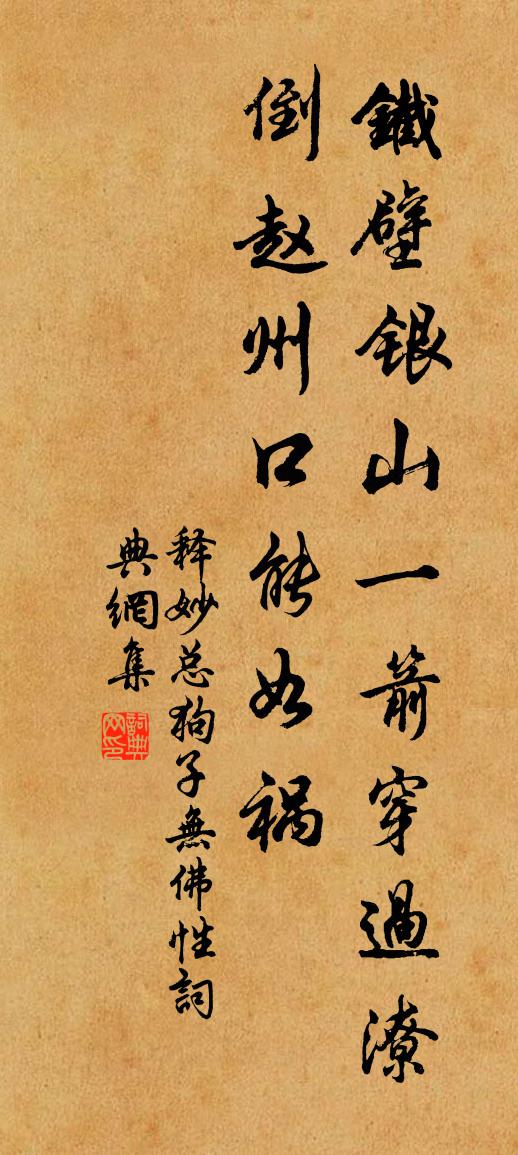 鐵壁銀山一箭穿過潦
倒赵州口能如禍
释妙总狗子無佛性詞
典網集
詞典
网印